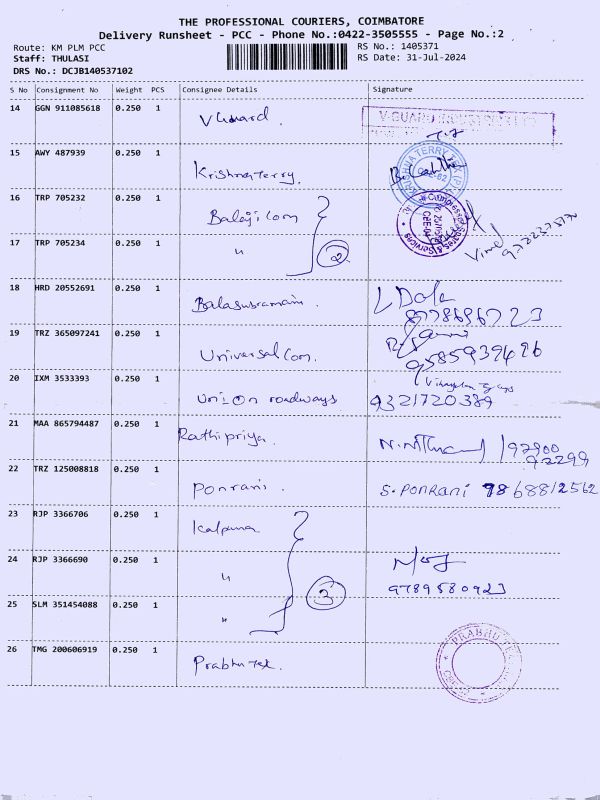 THE PROFESSIONAL COURIERS, COIMBATORE
Delivery Runsheet - PCC - Phone No.:0422-3505555 - Page No.:2
Route: KM PLM PCC RS No.: 1405371
Staff: THULASI RS Date: 31-Jul-2024
DRS No.: DCJB140537102
S No Consignment No Weight PCS Consignee Details Signature
14 GGN 911085618 0.250 1 V Guard. V-GUARD INDUSTRIES LTD
15 AWY 487939 0.250 1 Krishna terry. KRISHNA TERRY
16 TRP 705232 0.250 1 Balaji Com
17 TRP 705234 0.250 1 " 2 Vimal
18 HRD 20552691 0.250 1 Balasubramani. 8778696723
19 TRZ 365097241 0.250 1 Universal Com. 9585939426
20 IXM 3533393 0.250 1 Union roadways 9321720389
21 MAA 865794487 0.250 1 Rathipriya. 92900
92299
22 TRZ 125008818 0.250 1 Ponrani. S. PONRANI 9868812562
23 RJP 3366706 0.250 1 Kalpana
24 RJP 3366690 0.250 1 " 3 9789580923
25 SLM 351454088 0.250 1 "
26 TMG 200606919 0.250 1 Prabhu Tex. PRABHU TEX